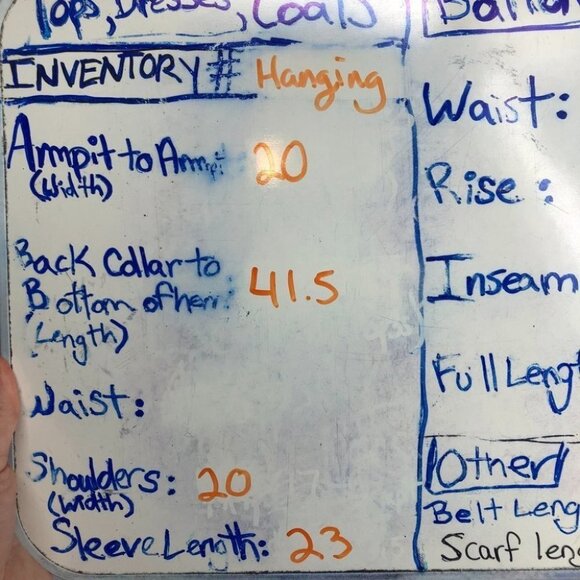 Tops, Dresses, Coats
INVENTORY # Hanging
Armpit to Armpit 20
(Width)
Back Collar to
Bottom of hem 41.5
(Length)
Waist:
Shoulders: 20
(Width)
Sleeve Length: 23
Waist:
Rise:
Inseam
Full Leng
Other
Belt Leng
Scarf len